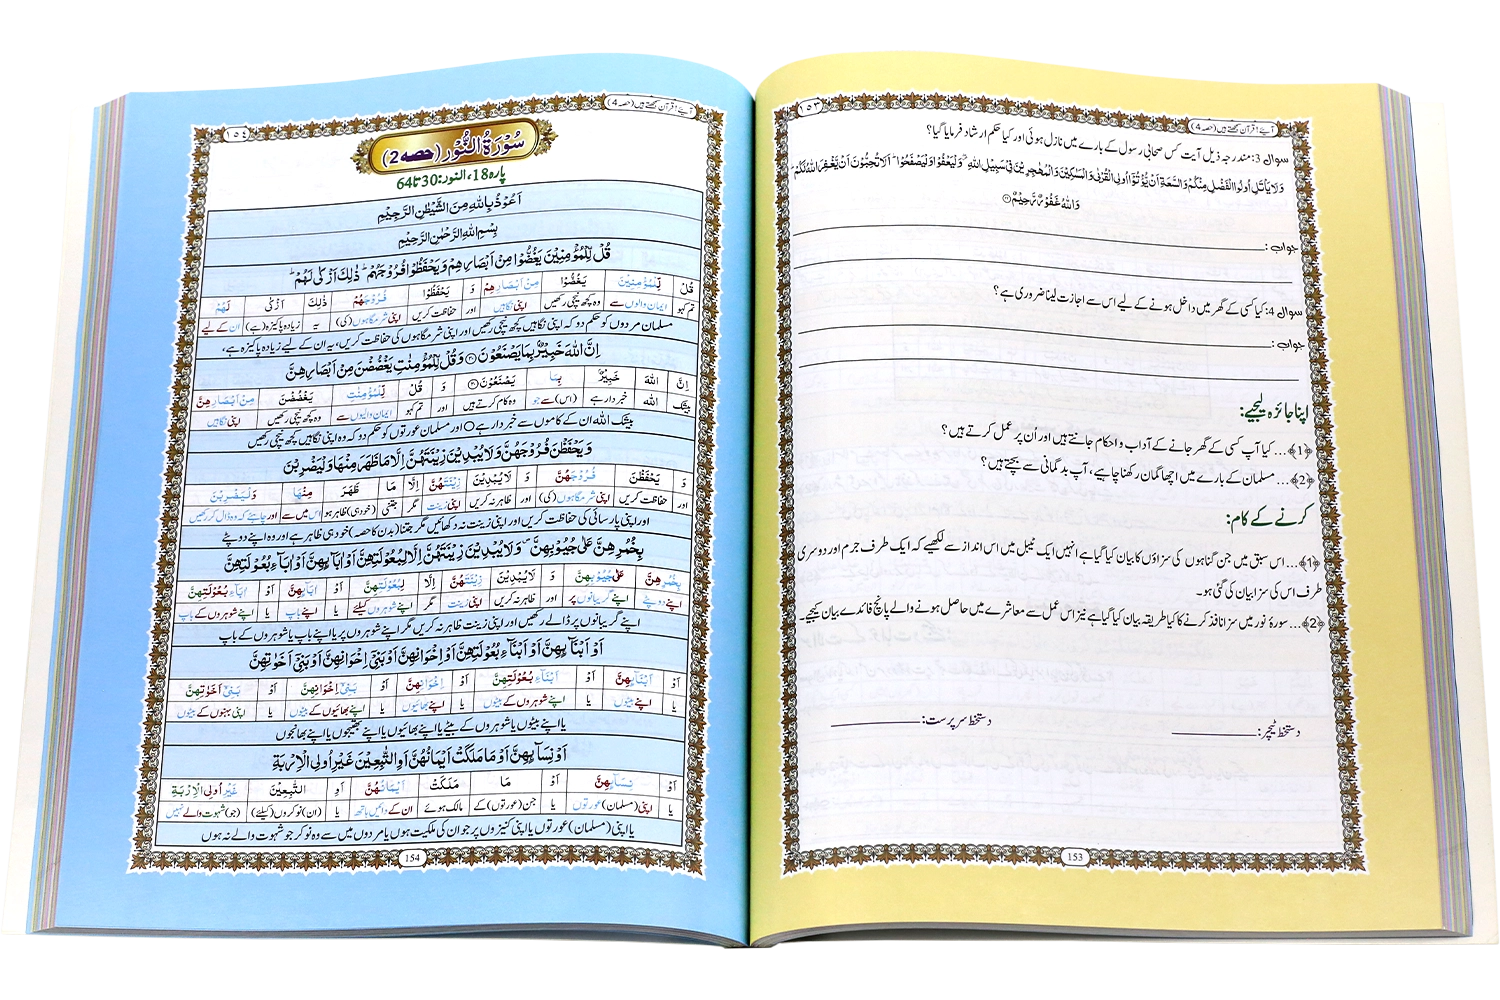 آیئے! قرآن سمجھتے ہیں (حصہ 4)
١٥٣
سوال 3: مندرجہ ذیل آیت کس صحابی رسول کے بارے میں نازل ہوئی اور کیا حکم ارشاد فرمایا گیا؟
وَلَا یَاْتَلِ اُولُوا الْفَضْلِ مِنْكُمْ وَالسَّعَةِ اَنْ یُّؤْتُوْۤا اُولِی الْقُرْبٰى وَالْمَسٰكِیْنَ وَالْمُهٰجِرِیْنَ فِیْ سَبِیْلِ اللّٰهِ وَلْیَعْفُوْا وَلْیَصْفَحُوْا اَلَا تُحِبُّوْنَ اَنْ یَّغْفِرَ اللّٰهُ لَكُمْ
وَاللّٰهُ غَفُوْرٌ رَّحِیْمٌ
جواب:
سوال 4: کیا کسی کے گھر میں داخل ہونے کے لیے اس سے اجازت لینا ضروری ہے؟
جواب:
اپنا جائزہ لیجیے:
﴿1﴾... کیا آپ کسی کے گھر جانے کے آداب و احکام جانتے ہیں اور اُن پر عمل کرتے ہیں؟
﴿2﴾... مسلمان کے بارے میں اچھا گمان رکھنا چاہیے، آپ بدگمانی سے بچتے ہیں؟
کرنے کے کام:
﴿1﴾... اس سبق میں جن گناہوں کی سزاؤں کا بیان کیا گیا ہے انہیں ایک ٹیبل میں اس انداز سے لکھیے کہ ایک طرف جرم اور دوسری
طرف اس کی سزا بیان کی گئی ہو۔
﴿2﴾... سورۂ نور میں سزا نافذ کرنے کا کیا طریقہ بیان کیا گیا ہے نیز اس عمل سے معاشرے میں حاصل ہونے والے پانچ فائدے بیان کیجیے۔
دستخط ٹیچر: دستخط سرپرست:
153
آیئے! قرآن سمجھتے ہیں (حصہ 4)
١٥٤
سُوْرَةُ النُّوْر (حصہ 2)
پارہ 18، النور: 30 تا 64
اَعُوْذُ بِاللّٰهِ مِنَ الشَّیْطٰنِ الرَّجِیْمِ
بِسْمِ اللّٰهِ الرَّحْمٰنِ الرَّحِیْمِ
قُلْ لِّلْمُؤْمِنِیْنَ یَغُضُّوْا مِنْ اَبْصَارِهِمْ وَیَحْفَظُوْا فُرُوْجَهُمْ ذٰلِكَ اَزْكٰى لَهُمْ
قُلْ لِّلْمُؤْمِنِیْنَ یَغُضُّوْا مِنْ اَبْصَارِهِمْ وَ یَحْفَظُوْا فُرُوْجَهُمْ ذٰلِكَ اَزْكٰى لَهُمْ
تم کہو ایمان والوں سے وہ کچھ نیچی رکھیں اپنی نگاہیں اور حفاظت کریں اپنی شرمگاہوں (کی) یہ زیادہ پاکیزہ (ہے) ان کے لیے
مسلمان مردوں کو حکم دو کہ اپنی نگاہیں کچھ نیچی رکھیں اور اپنی شرمگاہوں کی حفاظت کریں، یہ ان کے لیے زیادہ پاکیزہ ہے،
اِنَّ اللّٰهَ خَبِیْرٌۢ بِمَا یَصْنَعُوْنَ وَقُلْ لِّلْمُؤْمِنٰتِ یَغْضُضْنَ مِنْ اَبْصَارِهِنَّ
اِنَّ اللّٰهَ خَبِیْرٌۢ بِمَا یَصْنَعُوْنَ وَ قُلْ لِّلْمُؤْمِنٰتِ یَغْضُضْنَ مِنْ اَبْصَارِهِنَّ
بیشک اللہ خبردار ہے (اس) سے جو وہ کام کرتے ہیں اور تم کہو ایمان والیوں سے وہ کچھ نیچی رکھیں اپنی نگاہیں
بیشک اللہ ان کے کاموں سے خبردار ہے ○ اور مسلمان عورتوں کو حکم دو کہ وہ اپنی نگاہیں کچھ نیچی رکھیں
وَیَحْفَظْنَ فُرُوْجَهُنَّ وَلَا یُبْدِیْنَ زِیْنَتَهُنَّ اِلَّا مَا ظَهَرَ مِنْهَا وَلْیَضْرِبْنَ
وَ یَحْفَظْنَ فُرُوْجَهُنَّ وَ لَا یُبْدِیْنَ زِیْنَتَهُنَّ اِلَّا مَا ظَهَرَ مِنْهَا وَلْیَضْرِبْنَ
اور حفاظت کریں اپنی شرمگاہوں (کی) اور ظاہر نہ کریں اپنی زینت مگر جتنی (خود ہی) ظاہر ہو اس میں سے اور چاہئے کہ وہ ڈال کر رکھیں
اور اپنی پارسائی کی حفاظت کریں اور اپنی زینت نہ دکھائیں مگر جتنا (بدن کا حصہ) خود ہی ظاہر ہے اور وہ اپنے دوپٹے
بِخُمُرِهِنَّ عَلٰى جُیُوْبِهِنَّ وَلَا یُبْدِیْنَ زِیْنَتَهُنَّ اِلَّا لِبُعُوْلَتِهِنَّ اَوْ اٰبَآىٕهِنَّ اَوْ اٰبَآءِ بُعُوْلَتِهِنَّ
بِخُمُرِهِنَّ عَلٰى جُیُوْبِهِنَّ وَ لَا یُبْدِیْنَ زِیْنَتَهُنَّ اِلَّا لِبُعُوْلَتِهِنَّ اَوْ اٰبَآىٕهِنَّ اَوْ اٰبَآءِ بُعُوْلَتِهِنَّ
اپنے دوپٹے اپنے گریبانوں پر اور ظاہر نہ کریں اپنی زینت مگر اپنے شوہروں کیلئے یا اپنے باپ یا اپنے شوہروں کے باپ
اپنے گریبانوں پر ڈالے رکھیں اور اپنی زینت ظاہر نہ کریں مگر اپنے شوہروں پر یا اپنے باپ یا شوہروں کے باپ
اَوْ اَبْنَآىٕهِنَّ اَوْ اَبْنَآءِ بُعُوْلَتِهِنَّ اَوْ اِخْوَانِهِنَّ اَوْ بَنِیْۤ اِخْوَانِهِنَّ اَوْ بَنِیْۤ اَخَوٰتِهِنَّ
اَوْ اَبْنَآىٕهِنَّ اَوْ اَبْنَآءِ بُعُوْلَتِهِنَّ اَوْ اِخْوَانِهِنَّ اَوْ بَنِیْۤ اِخْوَانِهِنَّ اَوْ بَنِیْۤ اَخَوٰتِهِنَّ
یا اپنے بیٹوں یا اپنے شوہروں کے بیٹوں یا اپنے بھائیوں یا اپنے بھائیوں کے بیٹوں یا اپنی بہنوں کے بیٹوں
یا اپنے بیٹوں یا شوہروں کے بیٹے یا اپنے بھائیوں یا اپنے بھتیجوں یا اپنے بھانجوں
اَوْ نِسَآىٕهِنَّ اَوْ مَا مَلَكَتْ اَیْمَانُهُنَّ اَوِ التّٰبِعِیْنَ غَیْرِ اُولِی الْاِرْبَةِ
اَوْ نِسَآىٕهِنَّ اَوْ مَا مَلَكَتْ اَیْمَانُهُنَّ اَوِ التّٰبِعِیْنَ غَیْرِ اُولِی الْاِرْبَةِ
یا اپنی (مسلمان) عورتوں یا جن (عورتوں) کے مالک ہوئے ان کے دائیں ہاتھ یا (ان) نوکروں (کیلئے) (جو) شہوت والے نہیں
یا اپنی (مسلمان) عورتوں یا اپنی کنیزوں پر جو ان کی ملکیت ہوں یا مردوں میں سے وہ نوکر جو شہوت والے نہ ہوں
154